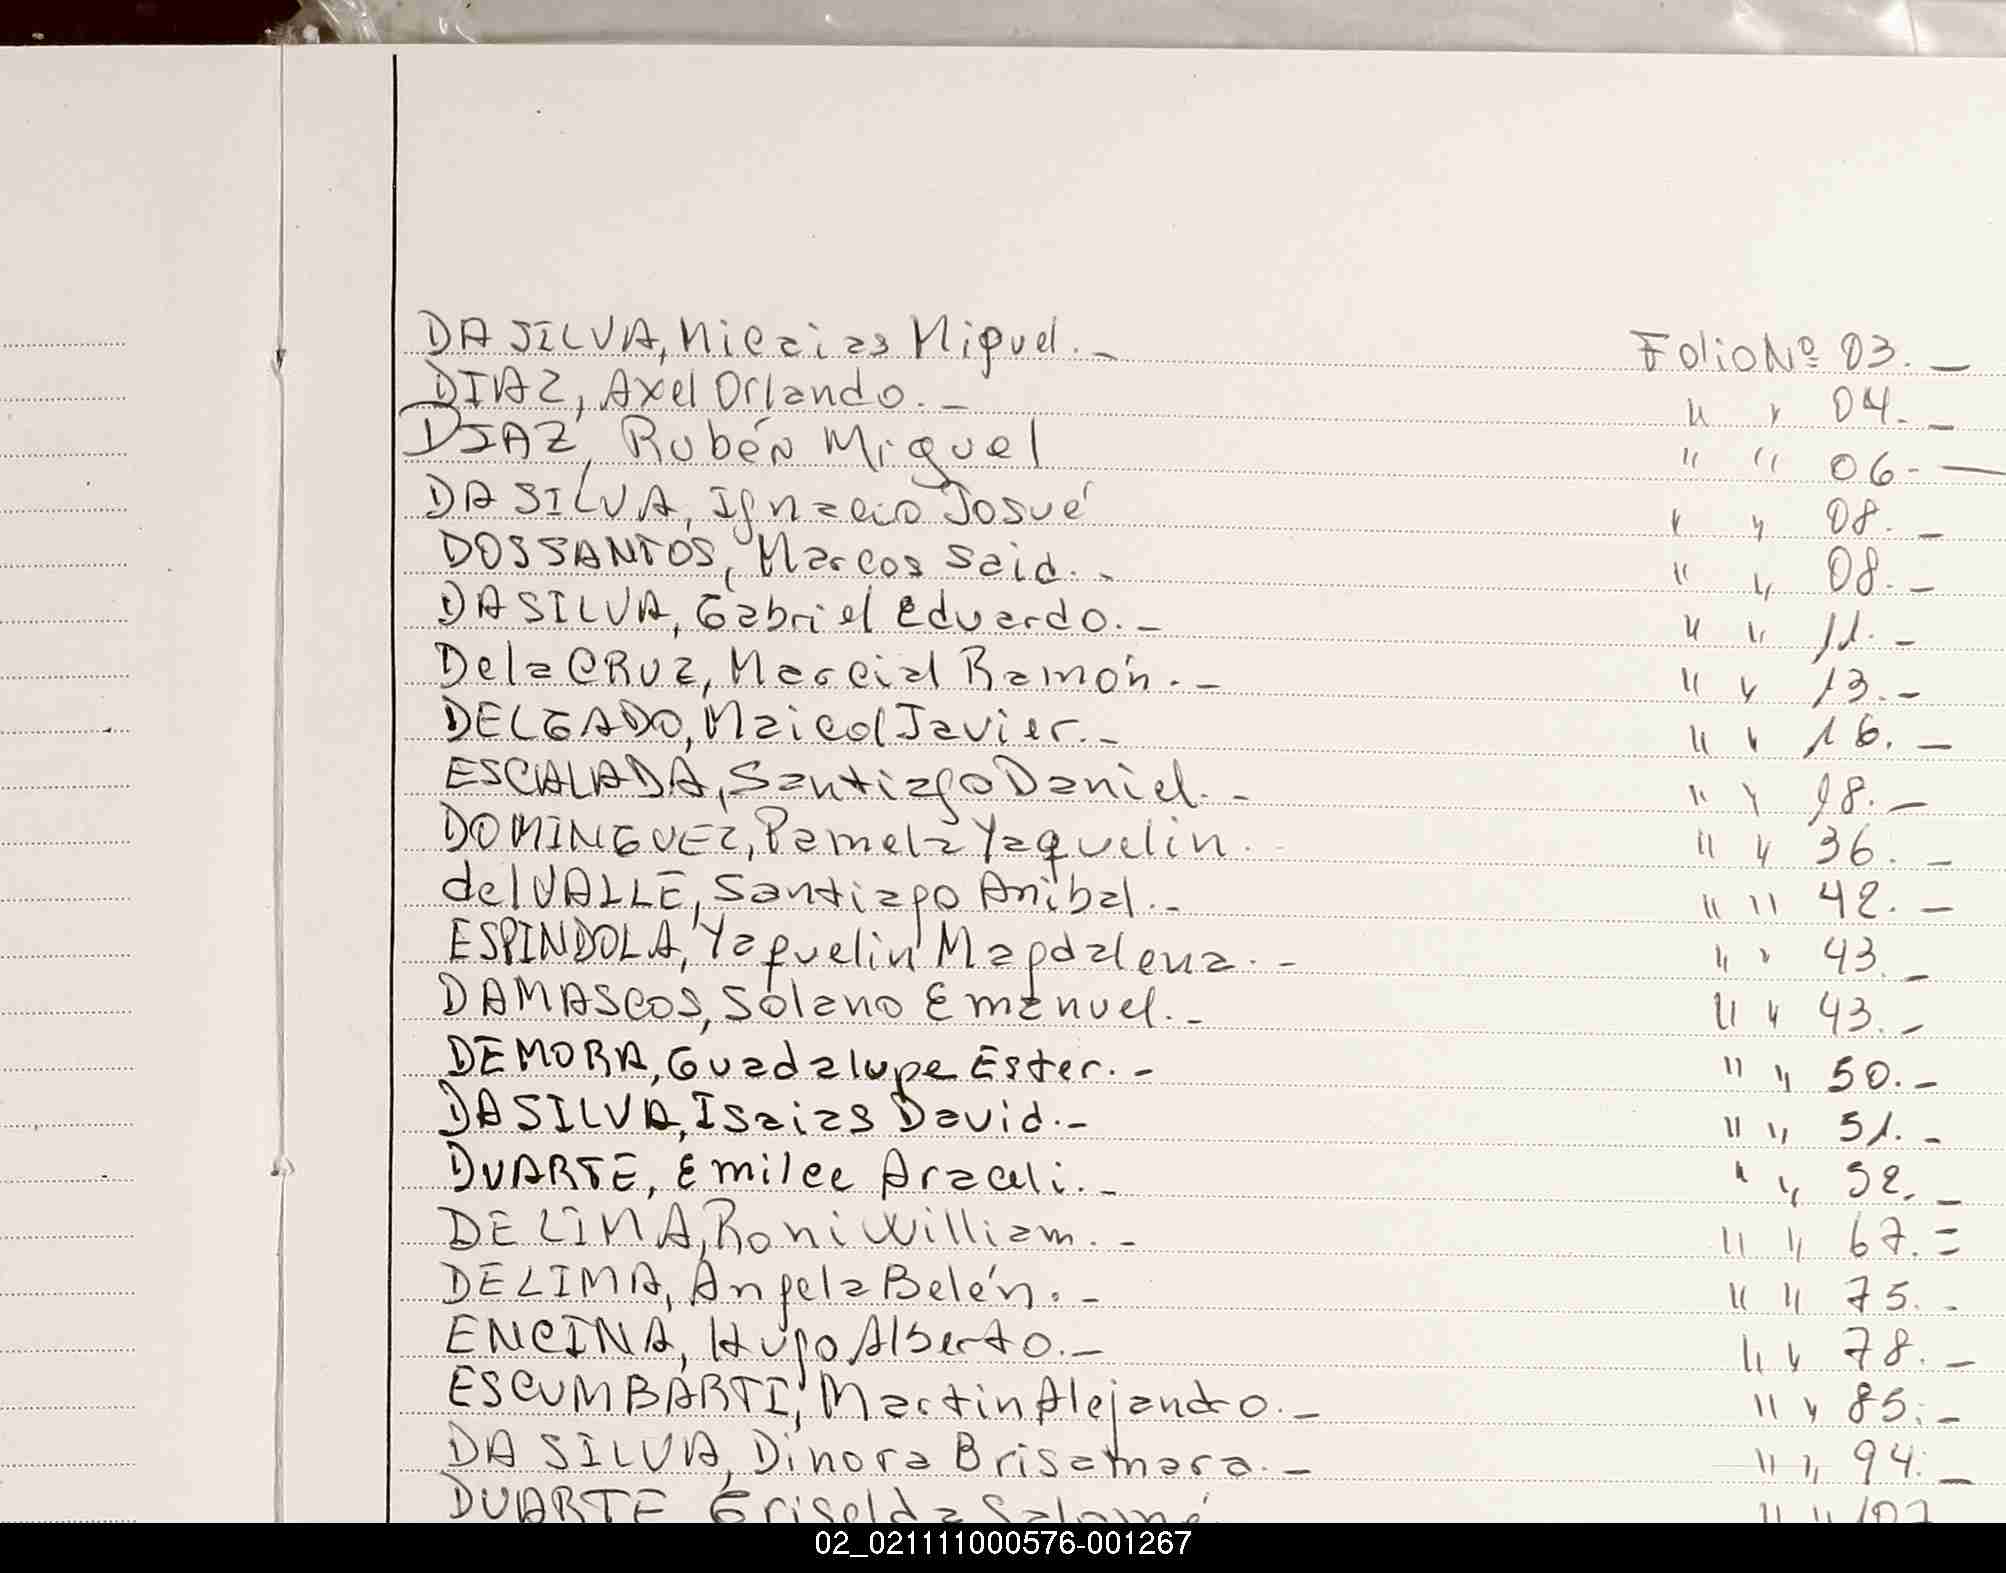 DA SILVA, Nicaias Miguel. - Folio Nº 03. -
DIAZ, Axel Orlando. - " " 04. -
DIAZ, Rubén Miguel " " 06. -
DA SILVA, Ignacio Josué " " 08. -
DOSSANTOS, Marcos Said. - " " 08. -
DA SILVA, Gabriel Eduardo. - " " 11. -
De la CRUZ, Marcial Ramón. - " " 13. -
DELGADO, Maicol Javier. - " " 16. -
ESCALADA, Santiago Daniel. - " " 18. -
DOMINGUEZ, Pamela Yaquelin. - " " 36. -
del VALLE, Santiago Anibal. - " " 42. -
ESPINDOLA, Yaquelin Magdalena. - " " 43. -
DAMASCOS, Solano Emanuel. - " " 43. -
DEMORA, Guadalupe Ester. - " " 50. -
DA SILVA, Isaias David. - " " 51. -
DUARTE, Emilce Araceli. - " " 52. -
DE LIMA, Roni William. - " " 67. =
DE LIMA, Angela Belén. - " " 75. -
ENCINA, Hugo Alberto. - " " 78. -
ESCUMBARTI, Martin Alejandro. - " " 85. -
DA SILVA, Dinora Brisamara. - " " 94. -
DUARTE Griselda Salomé " " 107
02_021111000576-001267